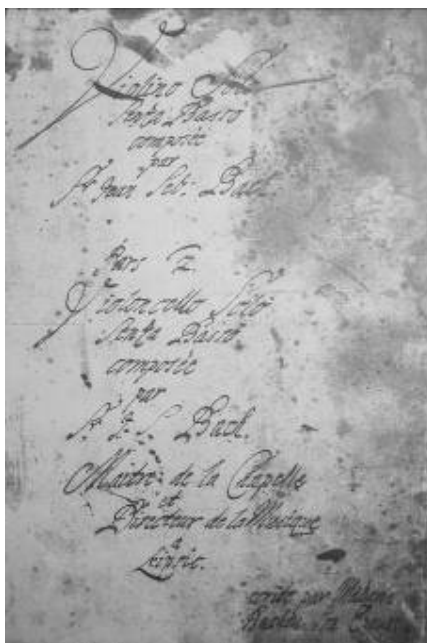 Violino Solo
Senza Basso
composée
par
Sr. Jean Seb: Bach.
Pars 2
Violoncello Solo
Senza Basso
composée
par
Sr. J. S. Bach.
Maitre de la Chapelle
et
Directeur de la Musique
a
Leipsic.
ecrite par Madame
Bachen. Son Epouse